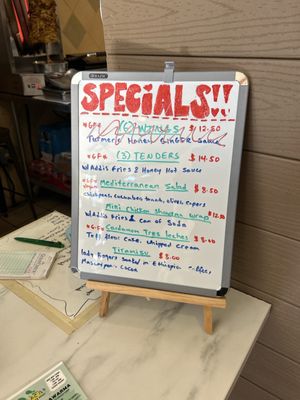 SPECIALS!!
*GF* (6) WINGS $12.50
Turmeric Honey GINGER Sauce
*GF* (3) TENDERS $14.50
W/Addis Fries & Honey Hot Sauce
*GF* Mediterranean Salad $8.50
chickpeas, cucumbers, tomato, olives, capers
Mini Chicken Shawarma Wrap $12.50
W/Addis Fries & Can of Soda
*G.F* Cardamom Tres Leches $8.00
Teff flour cake, whipped cream
Tiramisu $8.00
lady fingers soaked in Ethiopian Coffee,
Mascarpone, cocoa